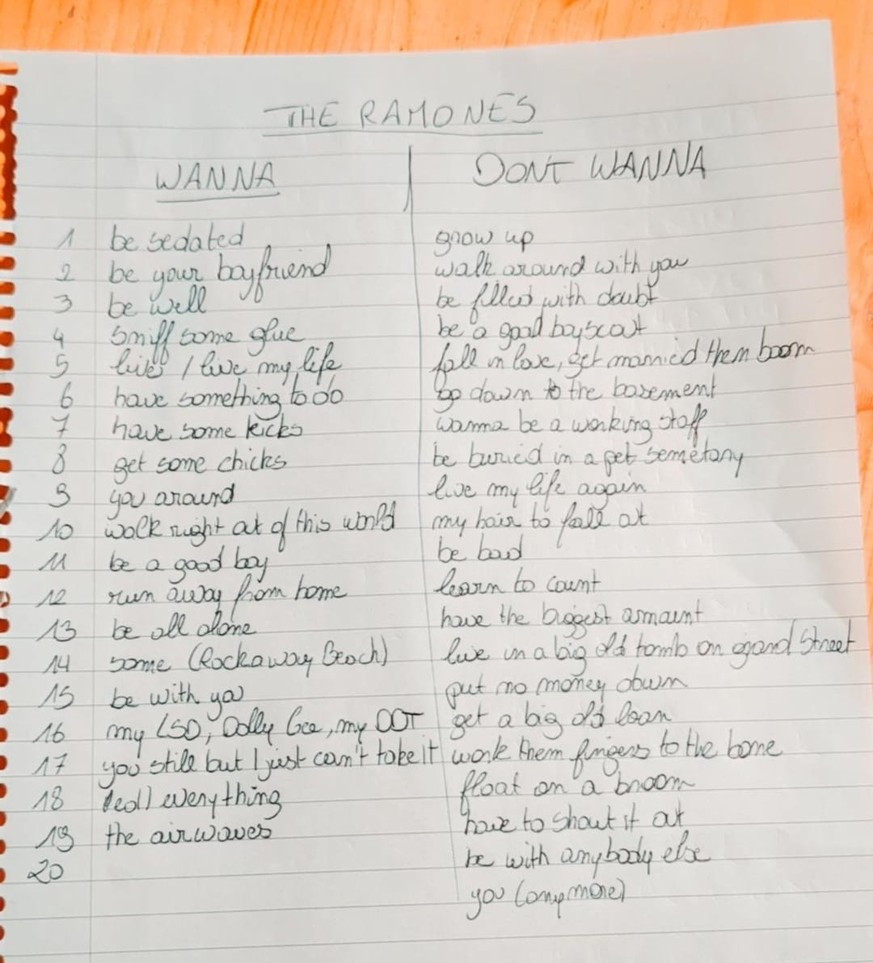 THE RAMONES
WANNA DONT WANNA
1 be sedated grow up
2 be your boyfriend walk around with you
3 be well be filled with doubt
4 sniff some glue be a good boyscout
5 live / live my life fall in love, get married then boom
6 have something to do go down to the basement
7 have some kicks wanna be a working stiff
8 get some chicks be buried in a pet semetary
9 you around live my life again
10 walk right out of this world my hair to fall out
11 be a good boy be bad
12 run away from home learn to count
13 be all alone have the biggest amount
14 some (Rockaway Beach) live in a big old tomb on grand Street
15 be with you put no money down
16 my LSD, Golly Gee, my DDT get a big old loan
17 you still but I just can't take it work them fingers to the bone
18 everything float on a broom
19 the airwaves have to shout it out
20 be with anybody else
you (anymore)